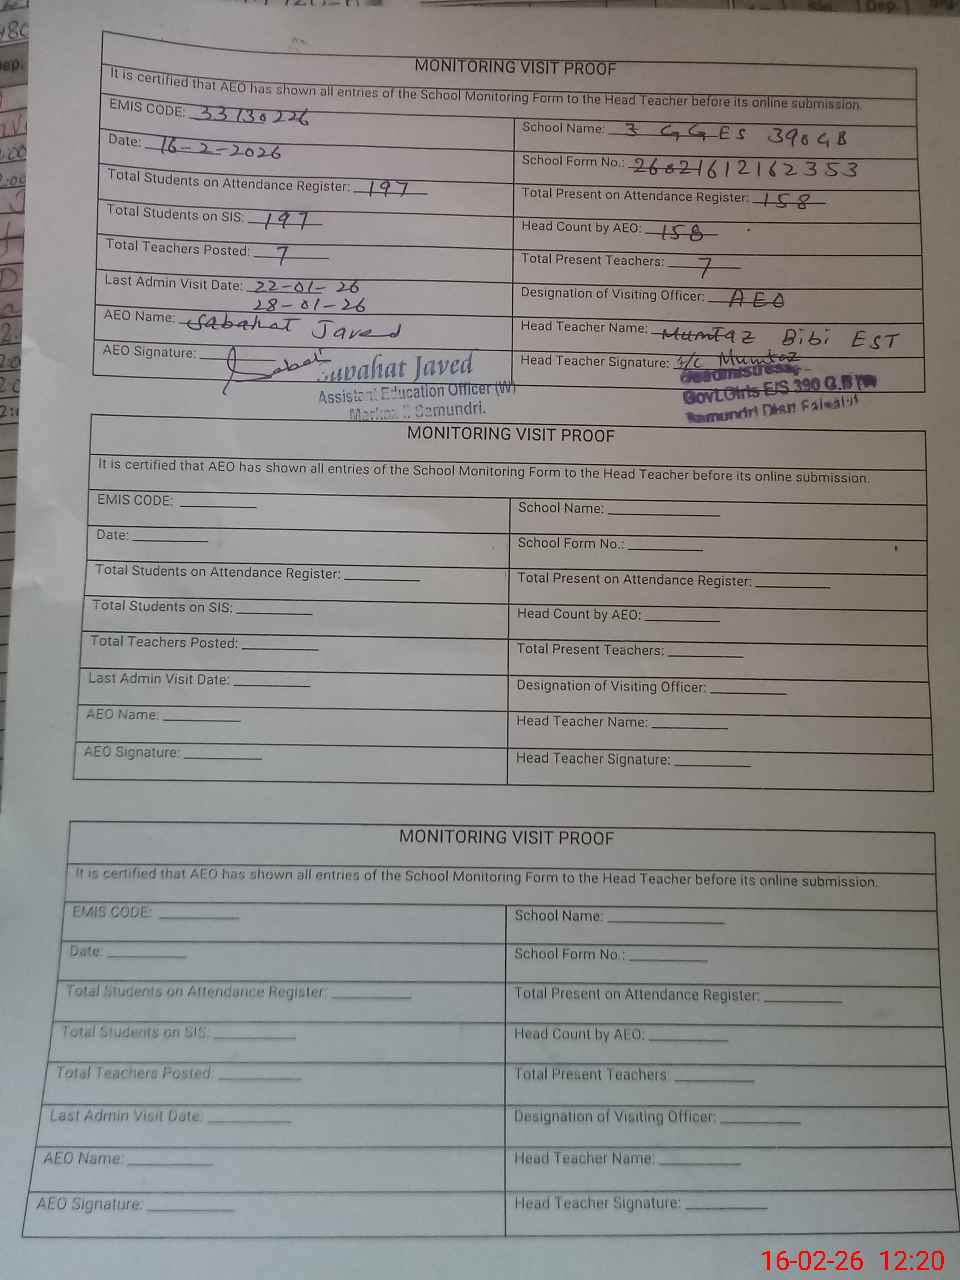 MONITORING VISIT PROOF
It is certified that AEO has shown all entries of the School Monitoring Form to the Head Teacher before its online submission.
EMIS CODE: 33130226
School Name: 3 GGES 390 GB
Date: 16-2-2026
School Form No.: 26021612162353
Total Students on Attendance Register: 197
Total Present on Attendance Register: 158
Total Students on SIS: 197
Head Count by AEO: 158
Total Teachers Posted: 7
Total Present Teachers: 7
Last Admin Visit Date: 22-01-26
28-01-26
Designation of Visiting Officer: AEO
AEO Name: Sabahat Javed
Head Teacher Name: Mumtaz Bibi EST
AEO Signature: Sabahat
Head Teacher Signature: I/C Mumtaz
Sabahat Javed
Assistant Education Officer (W)
Samundri.
Headmistress
Govt.Girls E/S 390 G.B
Samundri Distt Faisalabad
MONITORING VISIT PROOF
It is certified that AEO has shown all entries of the School Monitoring Form to the Head Teacher before its online submission.
EMIS CODE:
School Name:
Date:
School Form No.:
Total Students on Attendance Register:
Total Present on Attendance Register:
Total Students on SIS:
Head Count by AEO:
Total Teachers Posted:
Total Present Teachers:
Last Admin Visit Date:
Designation of Visiting Officer:
AEO Name:
Head Teacher Name:
AEO Signature:
Head Teacher Signature:
MONITORING VISIT PROOF
It is certified that AEO has shown all entries of the School Monitoring Form to the Head Teacher before its online submission.
EMIS CODE:
School Name:
Date:
School Form No.:
Total Students on Attendance Register:
Total Present on Attendance Register:
Total Students on SIS:
Head Count by AEO:
Total Teachers Posted:
Total Present Teachers:
Last Admin Visit Date:
Designation of Visiting Officer:
AEO Name:
Head Teacher Name:
AEO Signature:
Head Teacher Signature:
16-02-26 12:20